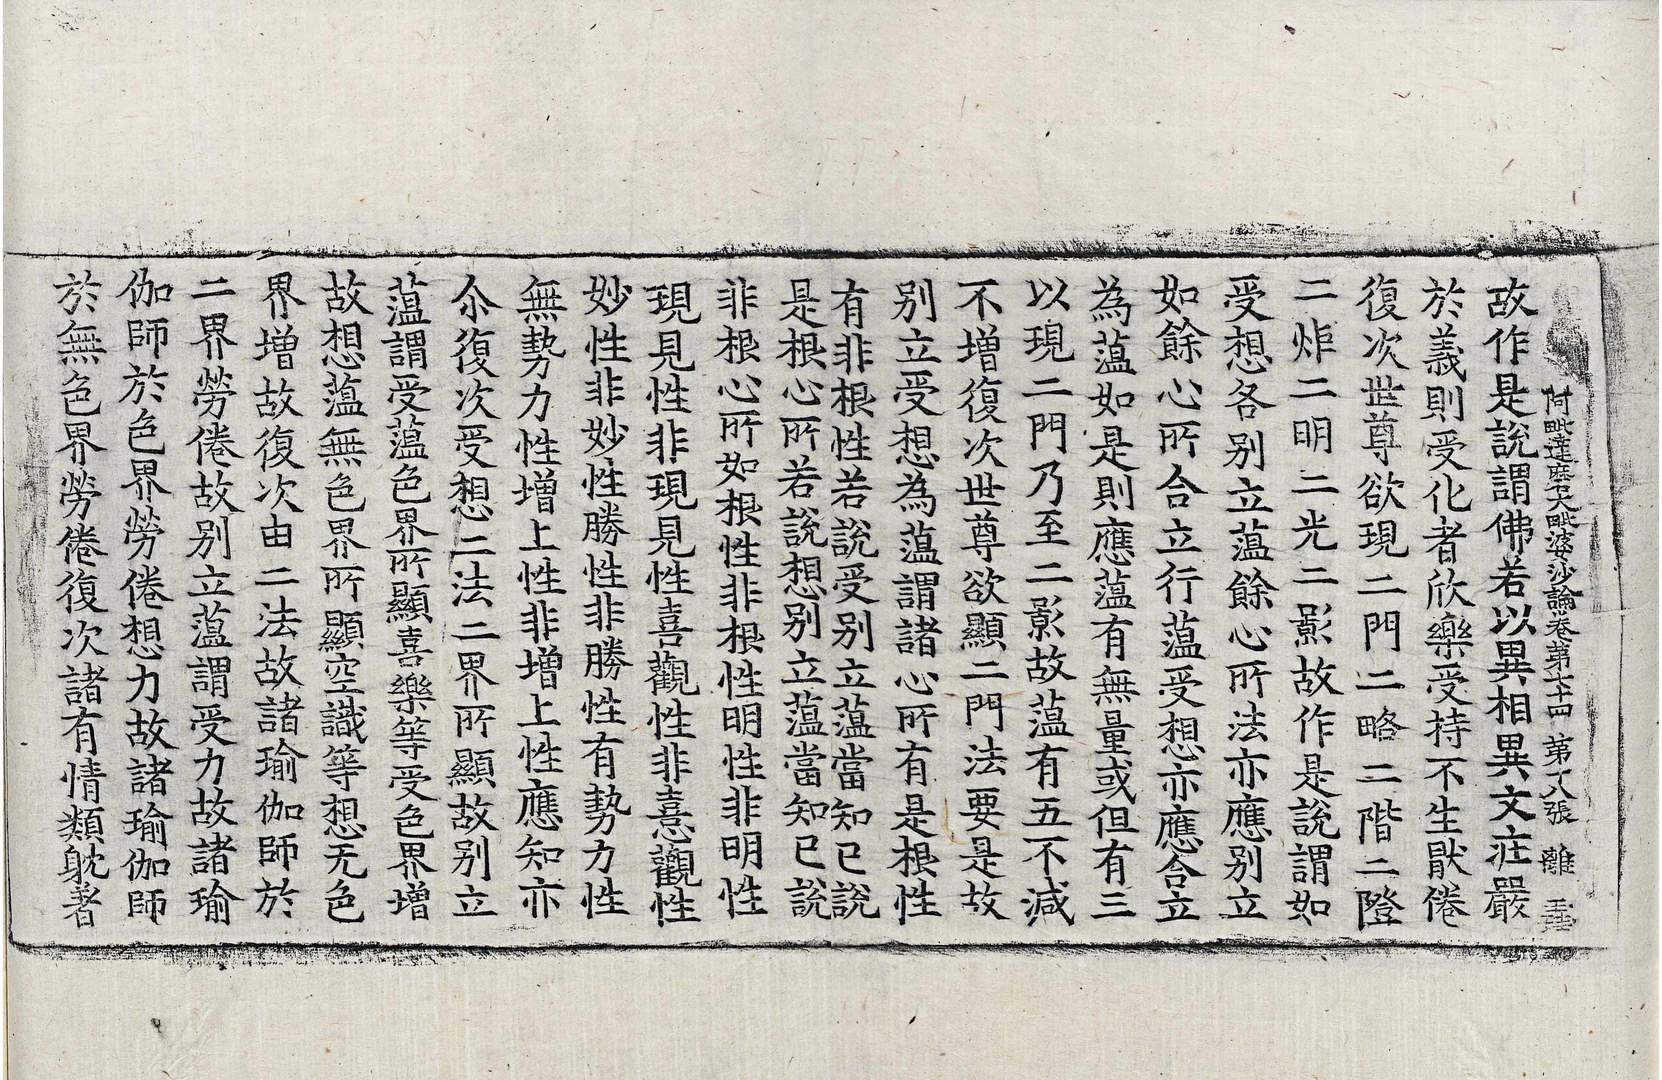 阿毗達磨大毗婆沙論卷第七十四 第十八張 離
故作是說謂佛若以異相異文莊嚴
於義則受化者欣樂受持不生猒倦
復次世尊欲現二門二略二階二隥
二炬二明二光二影故作是說謂如
受想各别立薀餘心所法亦應别立
如餘心所合立行薀受想亦應合立
為薀如是則應薀有無量或但有三
以現二門乃至二影故薀有五不減
不增復次世尊欲顯二門法要是故
别立受想為薀謂諸心所有是根性
有非根性若說受别立薀當知已說
是根心所若說想别立薀當知已說
非根心所如根性非根性明性非明性
現見性非現見性喜觀性非憙觀性
妙性非妙性勝性非勝性有勢力性
無勢力性增上性非增上性應知亦
尒復次受想二法二界所顯故别立
薀謂受薀色界所顯喜樂等受色界增
故想薀無色界所顯空識等想无色
界增故復次由二法故諸瑜伽師於
二界勞倦故别立薀謂受力故諸瑜
伽師於色界勞倦想力故諸瑜伽師
於無色界勞倦復次諸有情類躭著